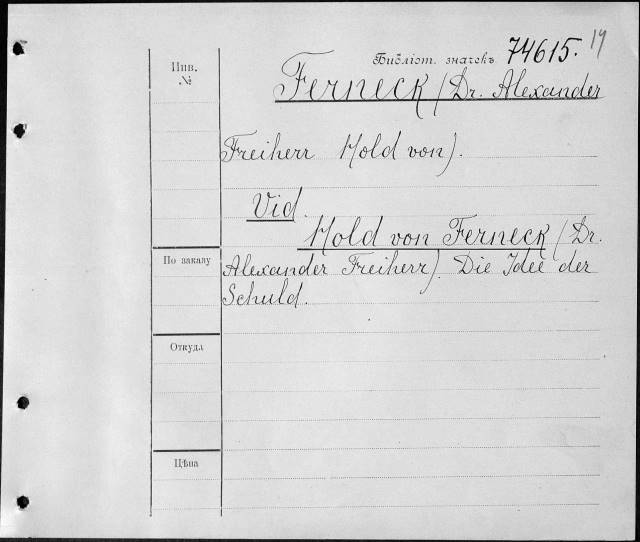 Инв.
№
Библіот. значекъ 74615. 14
Ferneck (Dr. Alexander
Freiherr Hold von).
Vid
Hold von Ferneck (Dr.
По заказу
Alexander Freiherr). Die Idee der
Schuld.
Откуда
Цѣна